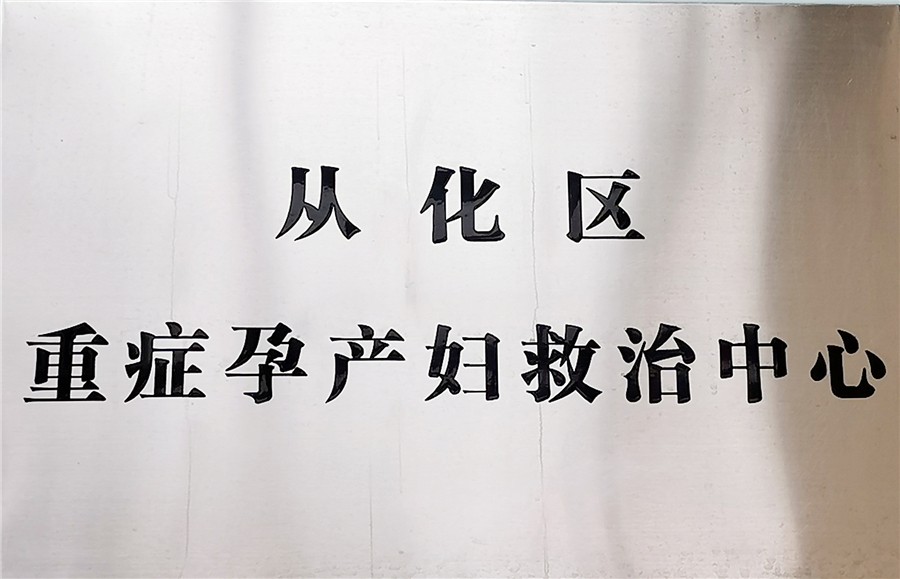 从化区
重症孕产妇救治中心